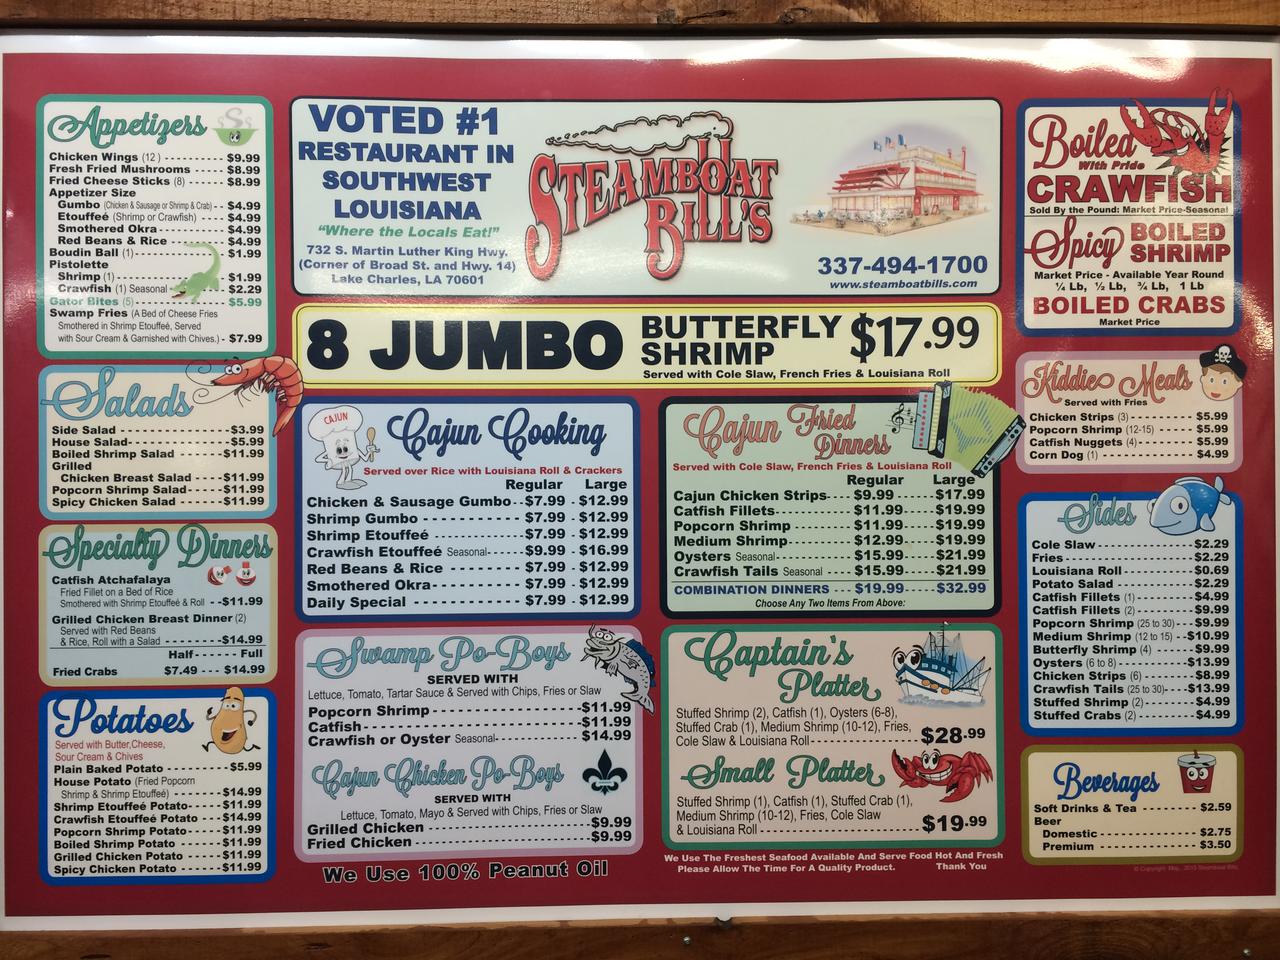 Appetizers
Chicken Wings (12) ---------- $9.99
Fresh Fried Mushrooms ----- $8.99
Fried Cheese Sticks (8) ------ $8.99
Appetizer Size
Gumbo (Chicken & Sausage or Shrimp & Crab) -- $4.99
Etoufeé (Shrimp or Crawfish) ---- $4.99
Smothered Okra ---------- $4.99
Red Beans & Rice -------- $4.99
Boudin Ball (1) -------------- $1.99
Pistolette
Shrimp (1) --------------- $1.99
Crawfish (1) Seasonal -------- $2.29
Gator Bites (5) ------------- $5.99
Swamp Fries (A Bed of Cheese Fries
Smothered in Shrimp Etouffeé, Served
with Sour Cream & Garnished with Chives.) - $7.99
Salads
Side Salad ----------------- $3.99
House Salad --------------- $5.99
Boiled Shrimp Salad ------- $11.99
Grilled
Chicken Breast Salad ---- $11.99
Popcorn Shrimp Salad ----- $11.99
Spicy Chicken Salad ------ $11.99
Specialty Dinners
Catfish Atchafalaya
Fried Fillet on a Bed of Rice
Smothered with Shrimp Etouffeé & Roll -- $11.99
Grilled Chicken Breast Dinner (2)
Served with Red Beans
& Rice, Roll with a Salad -------- $14.99
Half ----- Full
Fried Crabs $7.49 --- $14.99
Potatoes
Served with Butter,Cheese,
Sour Cream & Chives
Plain Baked Potato ------- $5.99
House Potato (Fried Popcorn
Shrimp & Shrimp Etouffeé) ------ $14.99
Shrimp Etouffeé Potato ---- $11.99
Crawfish Etouffeé Potato -- $14.99
Popcorn Shrimp Potato ----- $11.99
Boiled Shrimp Potato ------ $11.99
Grilled Chicken Potato ----- $11.99
Spicy Chicken Potato ------ $11.99
VOTED #1
RESTAURANT IN
SOUTHWEST
LOUISIANA
"Where the Locals Eat!"
732 S. Martin Luther King Hwy.
(Corner of Broad St. and Hwy. 14)
Lake Charles, LA 70601
STEAMBOAT
BILL'S
337-494-1700
www.steamboatbills.com
8 JUMBO BUTTERFLY SHRIMP $17.99
Served with Cole Slaw, French Fries & Louisiana Roll
CAJUN
Cajun Cooking
Served over Rice with Louisiana Roll & Crackers
Regular Large
Chicken & Sausage Gumbo -- $7.99 - $12.99
Shrimp Gumbo ------------ $7.99 - $12.99
Shrimp Etouffeé ----------- $7.99 - $12.99
Crawfish Etouffeé Seasonal ------ $9.99 - $16.99
Red Beans & Rice --------- $7.99 - $12.99
Smothered Okra ----------- $7.99 - $12.99
Daily Special ------------- $7.99 - $12.99
Swamp Po-Boys
SERVED WITH
Lettuce, Tomato, Tartar Sauce & Served with Chips, Fries or Slaw
Popcorn Shrimp ------------------ $11.99
Catfish -------------------------- $11.99
Crawfish or Oyster Seasonal ---------- $14.99
Cajun Chicken Po-Boys
SERVED WITH
Lettuce, Tomato, Mayo & Served with Chips, Fries or Slaw
Grilled Chicken ------------------- $9.99
Fried Chicken --------------------- $9.99
We Use 100% Peanut Oil
Cajun Fried Dinners
Served with Cole Slaw, French Fries & Louisiana Roll
Regular Large
Cajun Chicken Strips ---- $9.99 ------ $17.99
Catfish Fillets ---------- $11.99 ----- $19.99
Popcorn Shrimp -------- $11.99 ----- $19.99
Medium Shrimp --------- $12.99 ----- $19.99
Oysters Seasonal --------- $15.99 ----- $21.99
Crawfish Tails Seasonal ---- $15.99 ----- $21.99
COMBINATION DINNERS --- $19.99 ---- $32.99
Choose Any Two Items From Above:
Captain's Platter
Stuffed Shrimp (2), Catfish (1), Oysters (6-8),
Stuffed Crab (1), Medium Shrimp (10-12), Fries,
Cole Slaw & Louisiana Roll ------------ $28.99
Small Platter
Stuffed Shrimp (1), Catfish (1), Stuffed Crab (1),
Medium Shrimp (10-12), Fries, Cole Slaw
& Louisiana Roll ------------------- $19.99
We Use The Freshest Seafood Available And Serve Food Hot And Fresh
Please Allow The Time For A Quality Product. Thank You
Boiled
With Pride
CRAWFISH
Sold By the Pound: Market Price-Seasonal
Spicy BOILED SHRIMP
Market Price - Available Year Round
¼ Lb, ½ Lb, ¾ Lb, 1 Lb
BOILED CRABS
Market Price
Kiddie Meals
Served with Fries
Chicken Strips (3) ---------- $5.99
Popcorn Shrimp (12-15) ------ $5.99
Catfish Nuggets (4) --------- $5.99
Corn Dog (1) -------------- $4.99
Sides
Cole Slaw ---------------- $2.29
Fries -------------------- $2.29
Louisiana Roll ------------ $0.69
Potato Salad ------------- $2.29
Catfish Fillets (1) --------- $4.99
Catfish Fillets (2) --------- $9.99
Popcorn Shrimp (25 to 30) ---- $9.99
Medium Shrimp (12 to 15) -- $10.99
Butterfly Shrimp (4) ------- $9.99
Oysters (6 to 8) ------------ $13.99
Chicken Strips (6) --------- $8.99
Crawfish Tails (25 to 30) ---- $13.99
Stuffed Shrimp (2) --------- $4.99
Stuffed Crabs (2) ---------- $4.99
Beverages
Soft Drinks & Tea ---------- $2.59
Beer
Domestic --------------- $2.75
Premium ---------------- $3.50